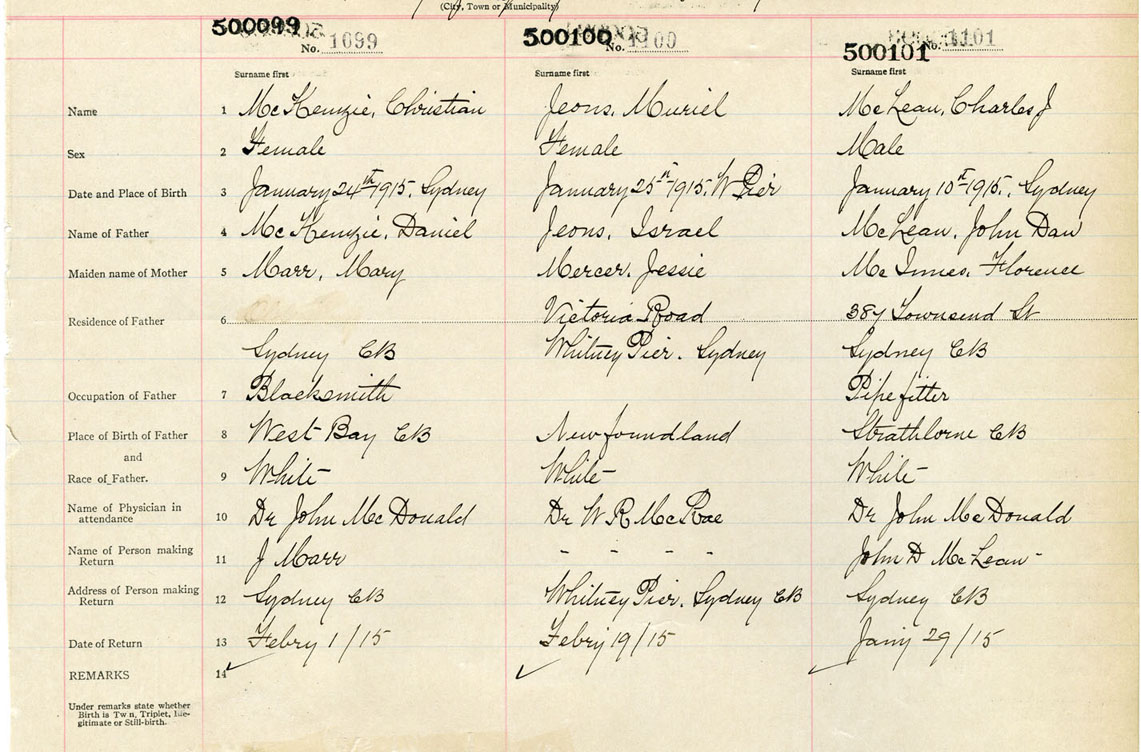 (City, Town or Municipality)
500099 No. 1099 500100 No. 1100 500101 No. 1101
Surname first Surname first Surname first
Name 1 McKenzie, Christian Jeons, Muriel McLean, Charles J
Sex 2 Female Female Male
Date and Place of Birth 3 January 24th 1915. Sydney January 25th 1915. W Pier January 10th 1915. Sydney
Name of Father 4 McKenzie, Daniel Jeons, Israel McLean, John Dan
Maiden name of Mother 5 Marr, Mary Mercer, Jessie McInnes, Florence
Residence of Father 6 Victoria Road 387 Townsend St
Sydney CB Whitney Pier. Sydney Sydney CB
Occupation of Father 7 Blacksmith Pipefitter
Place of Birth of Father 8 West Bay CB Newfoundland Strathlorne CB
and
Race of Father. 9 White White White
Name of Physician in attendance 10 Dr John McDonald Dr W R McRae Dr John McDonald
Name of Person making Return 11 J Marr - - - - John D McLean
Address of Person making Return 12 Sydney CB Whitney Pier. Sydney CB Sydney CB
Date of Return 13 Febry 1/15 Febry 19/15 Jany 29/15
REMARKS 14
Under remarks state whether
Birth is Twn, Triplet, Ille-
gitimate or Still-birth.